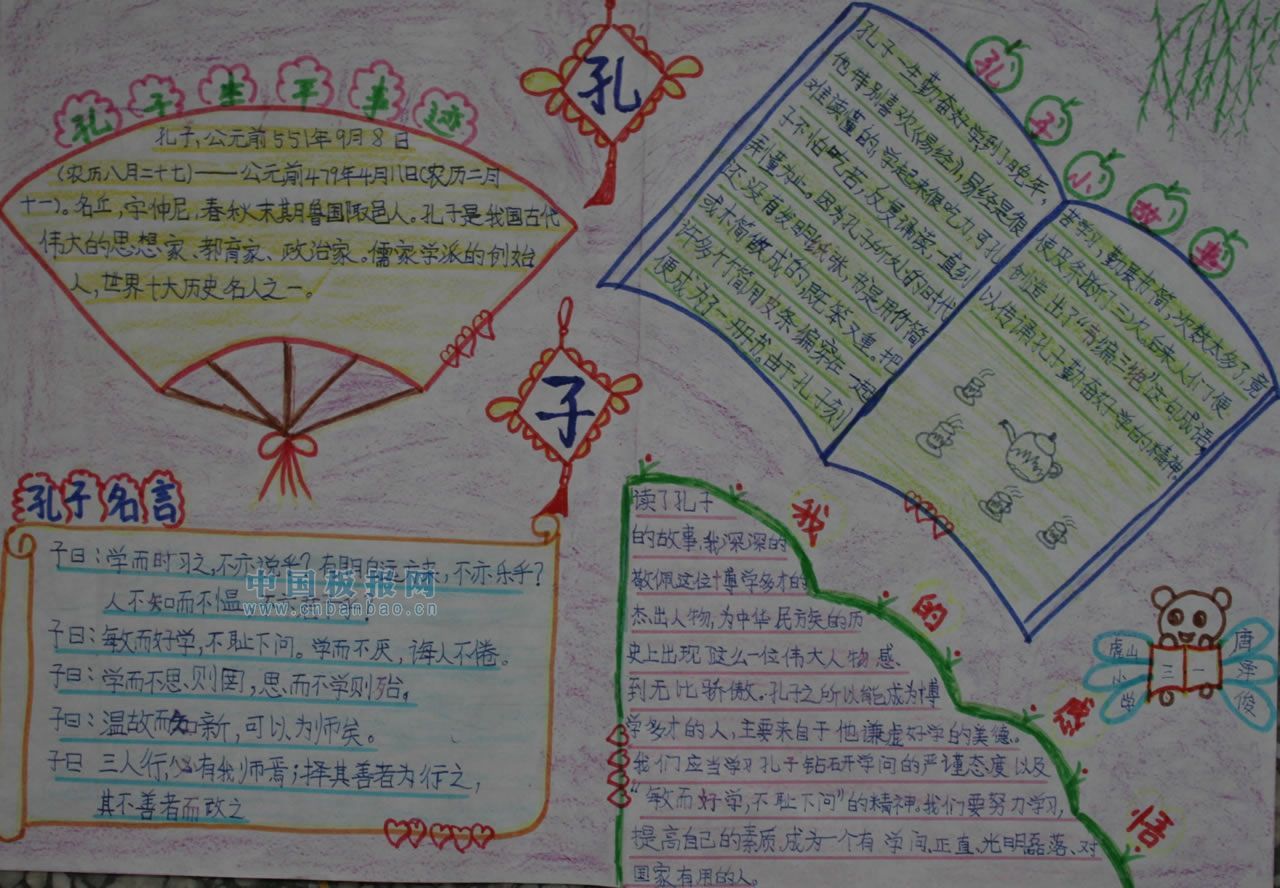 孔子生平事迹
孔子,公元前551年9月8日
(农历八月二十七)——公元前479年4月11日(农历二月
十一)。名丘,字仲尼,春秋末期鲁国陬邑人。孔子是我国古代
伟大的思想家、教育家、政治家。儒家学派的创始
人,世界十大历史名人之一。
孔
子
孔子小故事
孔子一生勤奋好学,到了晚年,
他特别喜欢《易经》,易经是很
难读懂的,学起来很吃力,可孔
子不怕吃苦,反复诵读,一直到
弄懂为止。因为孔子所处的时代
还没有发明纸张,书是用竹简
或木简做成的,既笨又重。把
许多竹简用皮条编穿在一起
便成为了一册书。由于孔子刻
苦学习,勤展书简,次数太多了,竟
使皮条断了三次。后来人们便
创造出了“韦编三绝”这句成语,
以传诵孔子勤奋好学的精神。
孔子名言
子曰:学而时习之,不亦说乎?有朋自远方来,不亦乐乎?
人不知而不愠
子曰:敏而好学,不耻下问。学而不厌,诲人不倦。
子曰:学而不思,则罔,思而不学则殆。
子曰:温故而知新,可以为师矣。
子曰 三人行,必有我师焉;择其善者为行之,
其不善者而改之
中国板报网
www.cnbanbao.cn
我的感悟
读了孔子
的故事,我深深的
敬佩这位博学多才的
杰出人物,为中华民族的历
史上出现了这么一位伟大人物感、
到无比骄傲。孔子之所以能成为博
学多才的人,主要来自于他谦虚好学的美德。
我们应当学习孔子钻研学问的严谨态度以及
“敏而好学,不耻下问”的精神。我们要努力学习,
提高自己的素质,成为一个有学问、正直、光明磊落、对
国家有用的人。
虎山小学
三一
唐泽俊